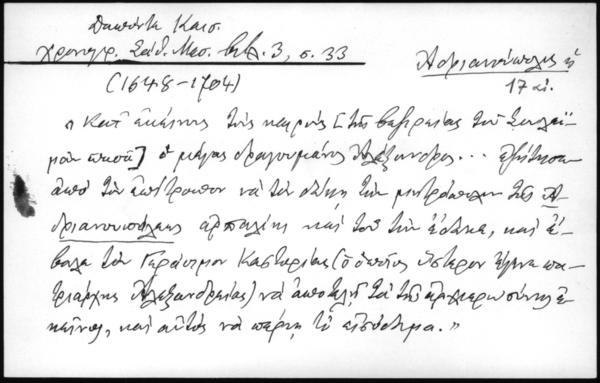 Δαπόντε Καισ.
χρονογρ. Σάθ. Μεσ. βιβ. 3, σ. 33
Ἀδριανούπολις ἡ
17 αἰ.
(1648-1704)
"Κατ' ἐκείνους τοὺς καιροὺς [τῆς βεζιρείας τοῦ Σουλεϊ-
μὰν πασᾶ] ὁ μέγας δραγουμάνος Ἀλέξανδρος... ἐζήτησεν
ἀπὸ τὸν ἐπίτροπον νὰ τὸν δώσῃ τὴν μητρόπολιν τῆς Ἀ-
δριανουπόλεως ἀρπαλίκι καὶ τοῦ τὴν ἔδωκε, καὶ ἔ-
βαλε τὸν Γεράσιμον Καστορίας (ὁ ὁποῖος ὕστερον ἔγινε πα-
τριάρχης Ἀλεξανδρείας) νὰ ἀποτελῇ τὰ τῆς ἀρχιερωσύνης ἐ-
κεῖνος, καὶ αὐτὸς νὰ παίρνῃ τὸ εἰσόδημα."